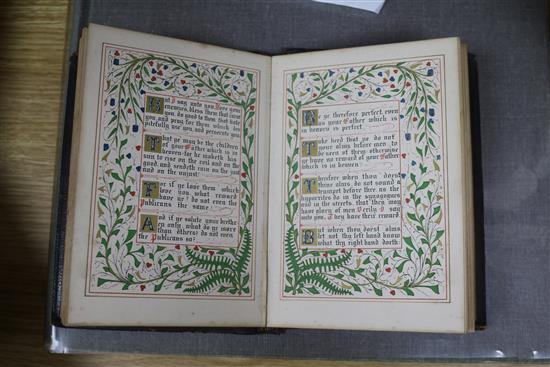 But I say unto you, Love your
enemies, bless them that curse
you, do good to them that hate
you, and pray for them which des
pitefully use you, and persecute you
That ye may be the children
of your Father which is in
heaven: for he maketh his
sun to rise on the evil and on the
good, and sendeth rain on the just
and on the unjust.
For if ye love them which
love you, what reward
have ye? do not even the
Publicans the same?
And if ye salute your brethr
en only, what do ye more
than others? do not even
the Publicans so?
Be ye therefore perfect, even
as your Father which is
in heaven is perfect.
Take heed that ye do not
your alms before men, to
be seen of them: otherwise
ye have no reward of your Father
which is in heaven.
Therefore when thou doest
thine alms, do not sound a
trumpet before thee, as the
hypocrites do in the synagogues
and in the streets, that they may
have glory of men. Verily I say
unto you, They have their reward.
But when thou doest alms
let not thy left hand know
what thy right hand doeth